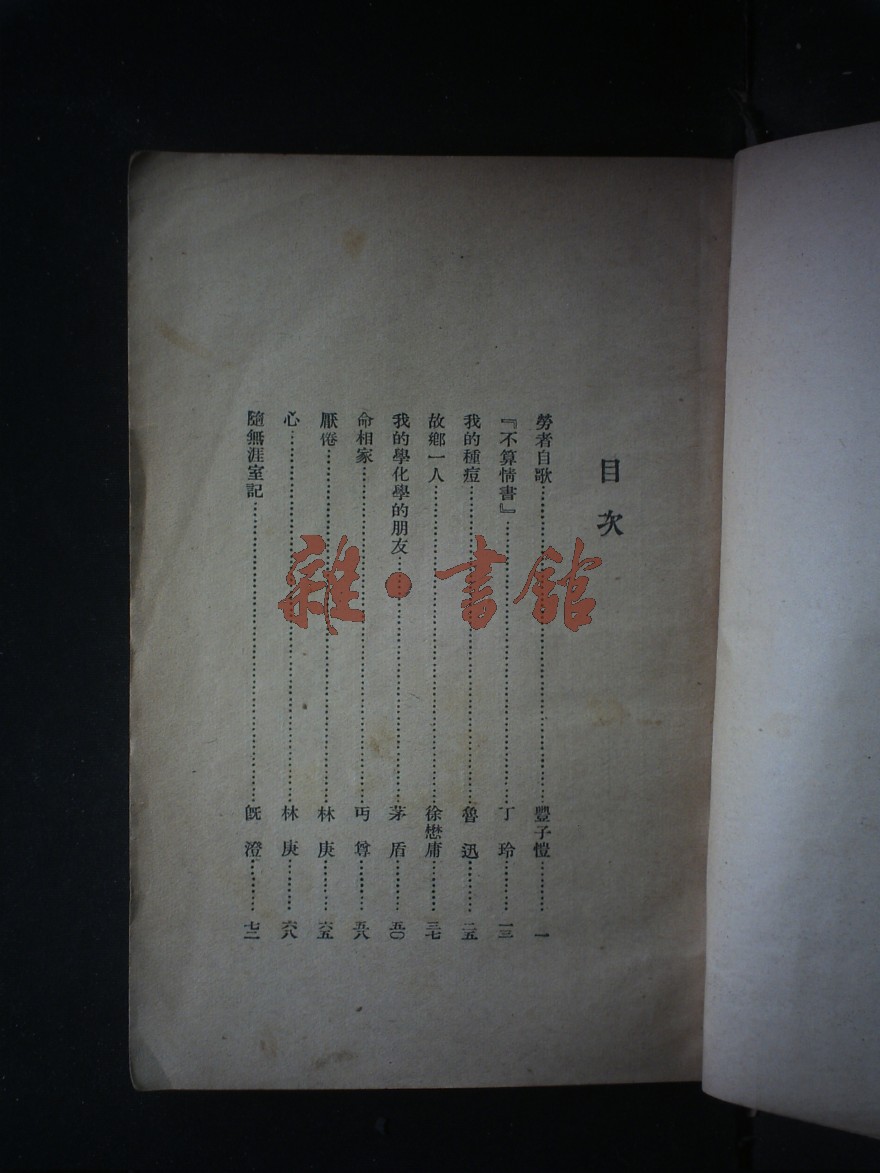 目次
勞者自歌……豐子愷……一
『不算情書』……丁玲……一三
我的種痘……魯迅……二五
故鄉一人……徐懋庸……三七
我的學化學的朋友……茅盾……五〇
命相家……丏尊……五八
厭倦……林庚……六五
心……林庚……六八
隨無涯室記……既澄……七二
雜·書館